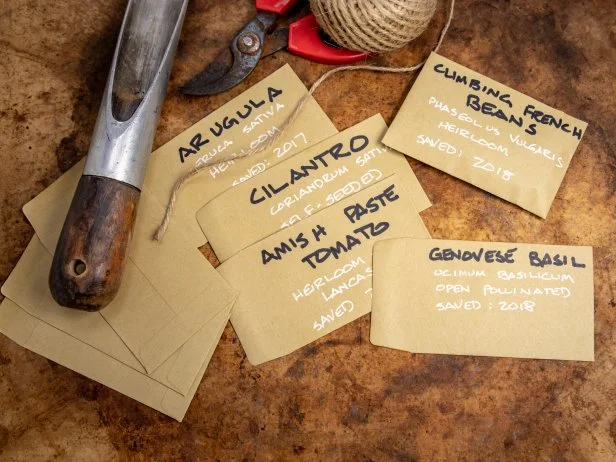 ARUGULA
ERUCA SATIVA
HEIRLOOM
SAVED: 2017
CILANTRO
CORIANDRUM SATIV
SELF-SEEDED
AMISH PASTE
TOMATO
HEIRLOOM
LANCAS
SAVED
CLIMBING FRENCH
BEANS
PHASEOLUS VULGARIS
HEIRLOOM
SAVED: 2018
GENOVESE BASIL
OCIMUM BASILICUM
OPEN POLLINATED
SAVED: 2018